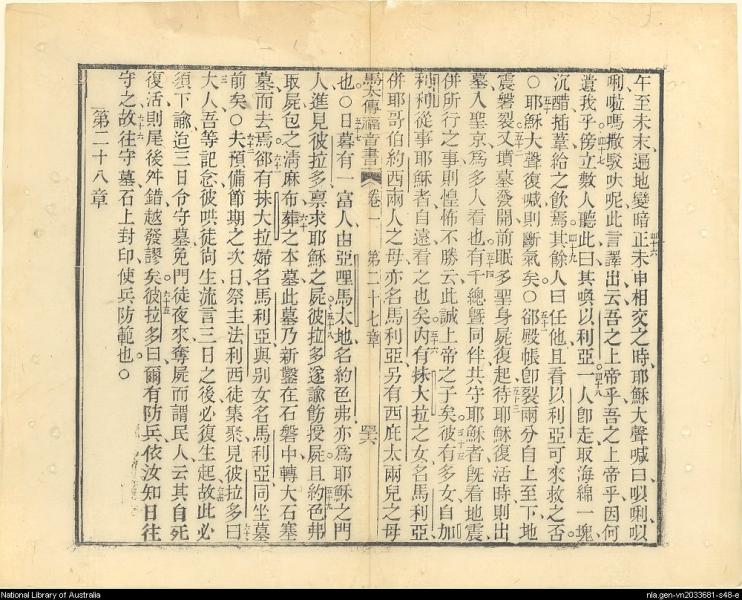 午至未末遍地變暗正未申相交之時耶穌大聲喊曰㕽唎㕽
唎啦嗎撒駁呋呢此言譯出云吾之上帝乎吾之上帝乎因何
遺我乎傍立數人聽此曰其喚以利亞一人卽走取海綿一塊
沉醋插葦給之飲焉其餘人曰任他且看以利亞可來救之否
○耶穌大聲復喊則斷氣矣○郤殿帳卽裂兩分自上至下地
震磐裂又墳墓發開前眠多聖身屍復起待耶穌復活時則出
墓入聖京爲多人看也有千總曁同伴共守耶穌者旣看地震
併所行之事則惶怖不勝云此誠上帝之子矣彼有多女自加
利利從事耶穌者自遠看之也矣內有抹大拉之女名馬利亞
併耶哥伯約西兩人之母亦名馬利亞另有西庇太兩兒之母
馬太傳福音書 卷一 第二十七章
也○日暮有一富人由亞哩馬太地名約色弗亦爲耶穌之門
人進見彼拉多禀求耶穌之屍彼拉多遂諭飭授屍且約色弗
取屍包之清麻布葬之本墓此墓乃新鑿在石磐中轉大石塞
墓而去焉郤有抹大拉婦名馬利亞與別女名馬利亞同坐墓
前矣○夫預備節期之次日祭主法利西徒集聚見彼拉多曰
大人吾等記念彼哄徒尚生流言三日之後必復生起故此必
須下諭造三日令守墓免門徒夜來奪屍而謂民人云其自死
復活則尾後舛錯越發謬矣彼拉多曰爾有防兵依汝知日往
守之故往守墓石上封印使兵防範也○
第二十八章
National Library of Australia
nla.gen-vn2033681-s48-e